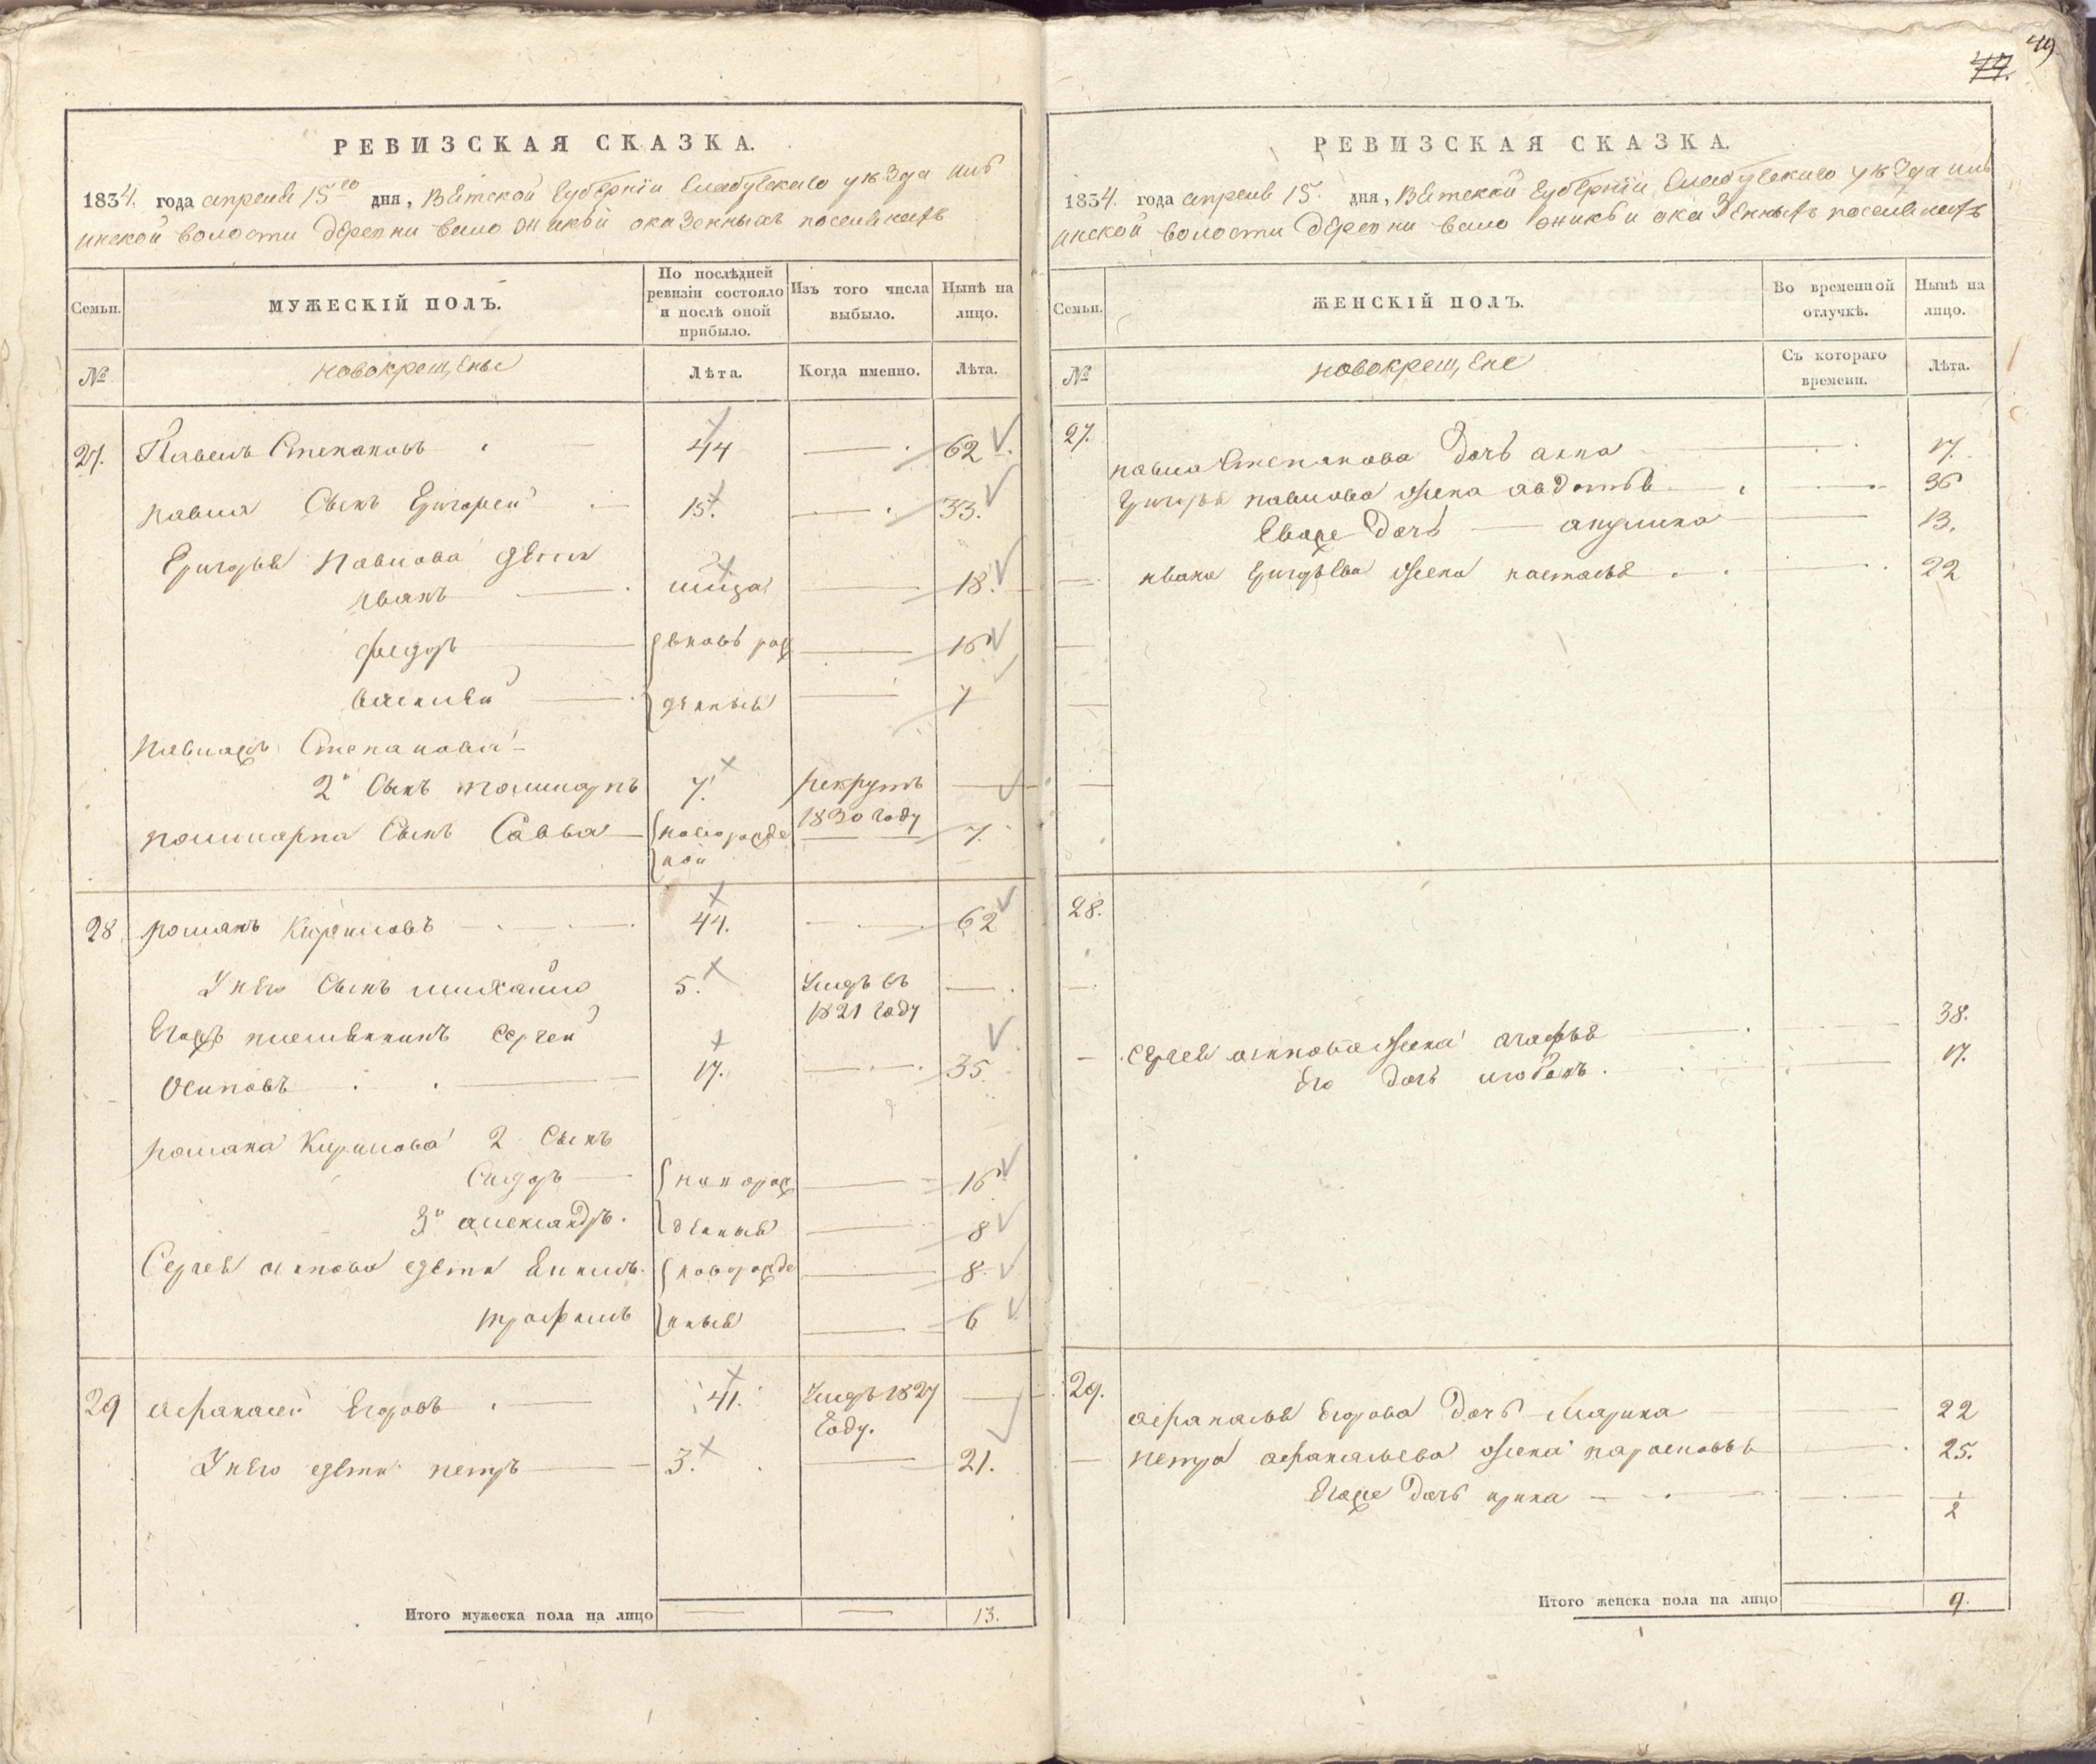 49
47.
РЕВИЗСКАЯ СКАЗКА.
1834. года апреля 15го дня, Вятской губернiи Елабужскаго уѣзда Ильинской волости деревни вало Оникой о казенныхъ поселянахъ
Семьи. МУЖЕСКІЙ ПОЛЪ. По послѣдней ревизіи состояло и послѣ оной прибыло. Изъ того числа выбыло. Нынѣ на лицо.
№ новокрещены Лѣта. Когда именно. Лѣта.
27. Павелъ Степановъ 44 62
павла Сынъ Григорей 15. 33.
Григорья Павлова дѣти
Иванъ 18.
федоръ вновь рож 16
василей денныя 7
Павла Степанова
2й Сынъ поликарпъ 7. рекрутъ 1830 году
поликарпа Сынъ Савва новорожде ной 7.
28 романъ Кириловъ 44. 62
У него Сынъ михайло 5. Умръ въ 1821 году
Егожъ племянникъ Сергей
Осиповъ 17. 35
романа Кирилова 2 Сынъ
Сидоръ новорож 16
3й александръ. денныя 8
Сергея осипова дѣти новорожде 8.
трофимъ нныя 6
29 афанасей Егоровъ 41. Умръ 1827 Году.
У него дѣти петръ 3. 21.
Итого мужеска пола на лицо 13.
РЕВИЗСКАЯ СКАЗКА.
1834. года апреля 15. дня, Вятской губернiи Елабужскаго уѣзда Ильинской волости деревни вало оники о казенныхъ поселянахъ
Семьи. ЖЕНСКІЙ ПОЛЪ. Во временной отлучкѣ. Нынѣ на лицо.
№ новокрещене Съ котораго времени. Лѣта.
27.
павла Степанова дочь анна 17.
Григорья павлова жена авдотья 36
Егоже дочь акулина 13.
ивана Григорьева жена настасья 22
28.
Сергея осипова жена агафья 38.
Его дочь любовь. 17.
29.
афанасья Егорова дочь Марина 22
петра афанасьева жена парасковья 25.
Егоже дочь ирина 1/2
Итого женска пола на лицо 9.